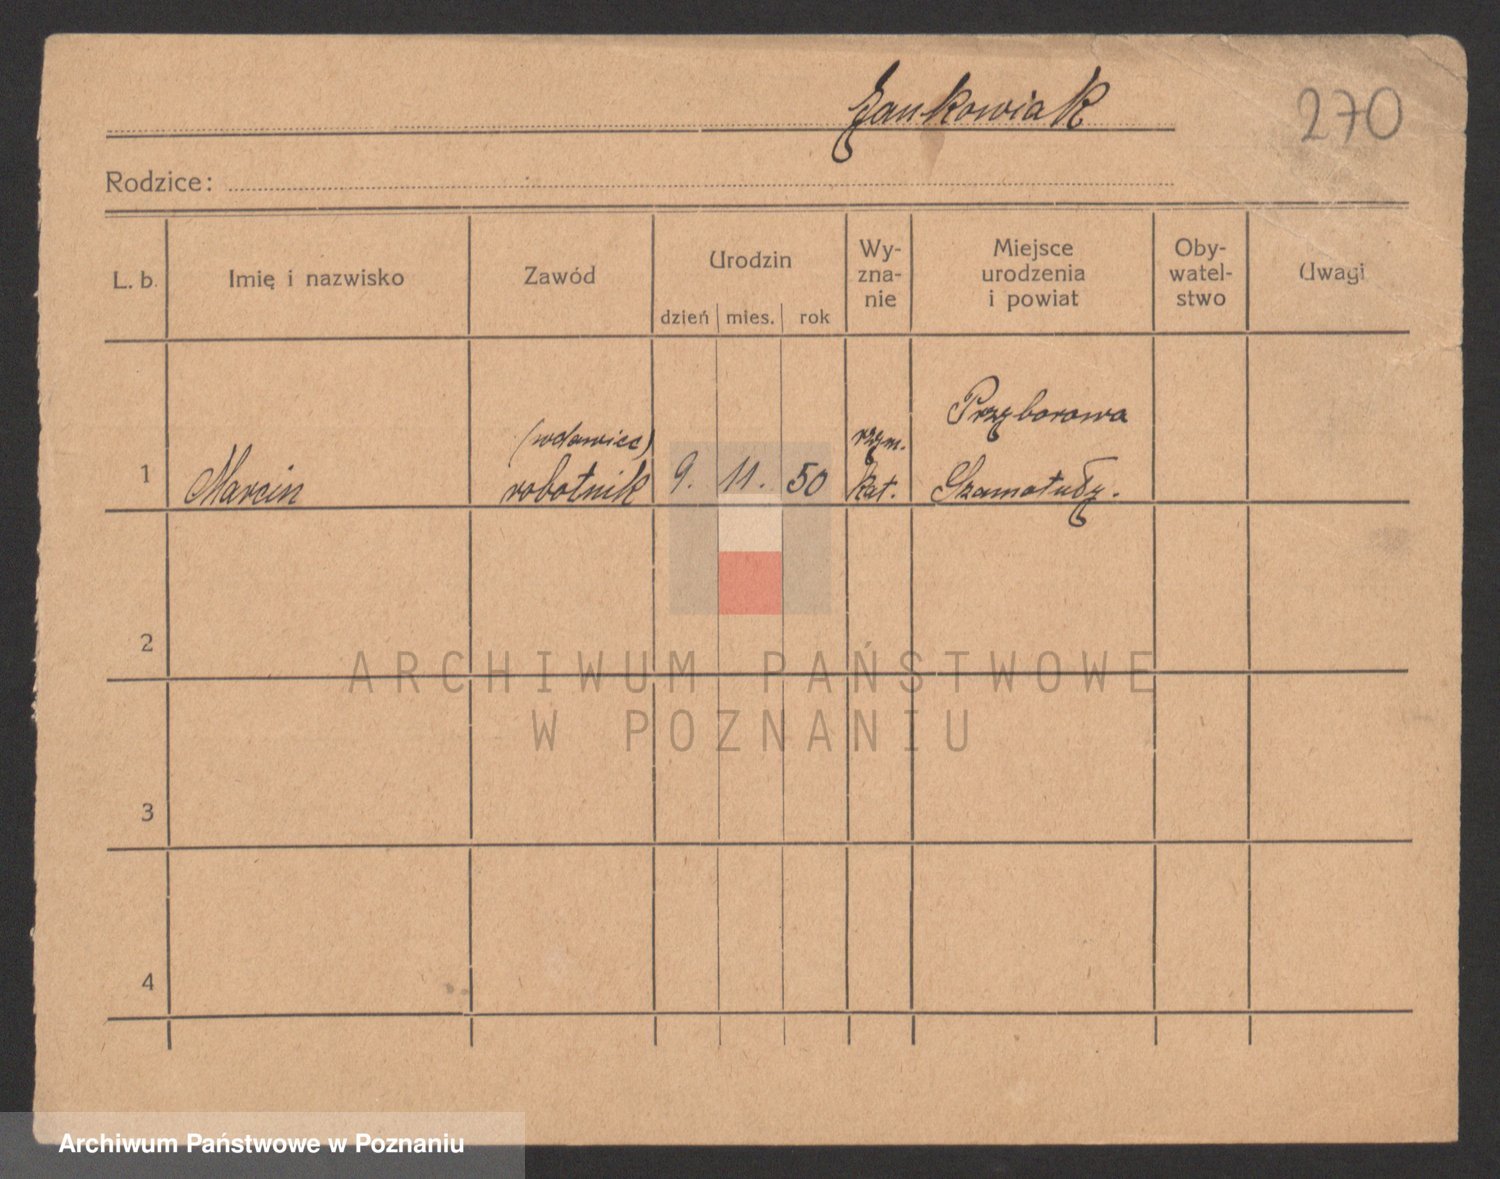 Jankowiak
270
Rodzice:
L. b.
Imię i nazwisko
Zawód
Urodzin
dzień mies. rok
Wy-
zna-
nie
Miejsce
urodzenia
i powiat
Oby-
watel-
stwo
Uwagi
1
Marcin
(wdowiec)
robotnik
9. 11. 50
rzym.
kat.
Przyborowo
Szamotuły.
2
3
4
ARCHIWUM PAŃSTWOWE
W POZNANIU
Archiwum Państwowe w Poznaniu